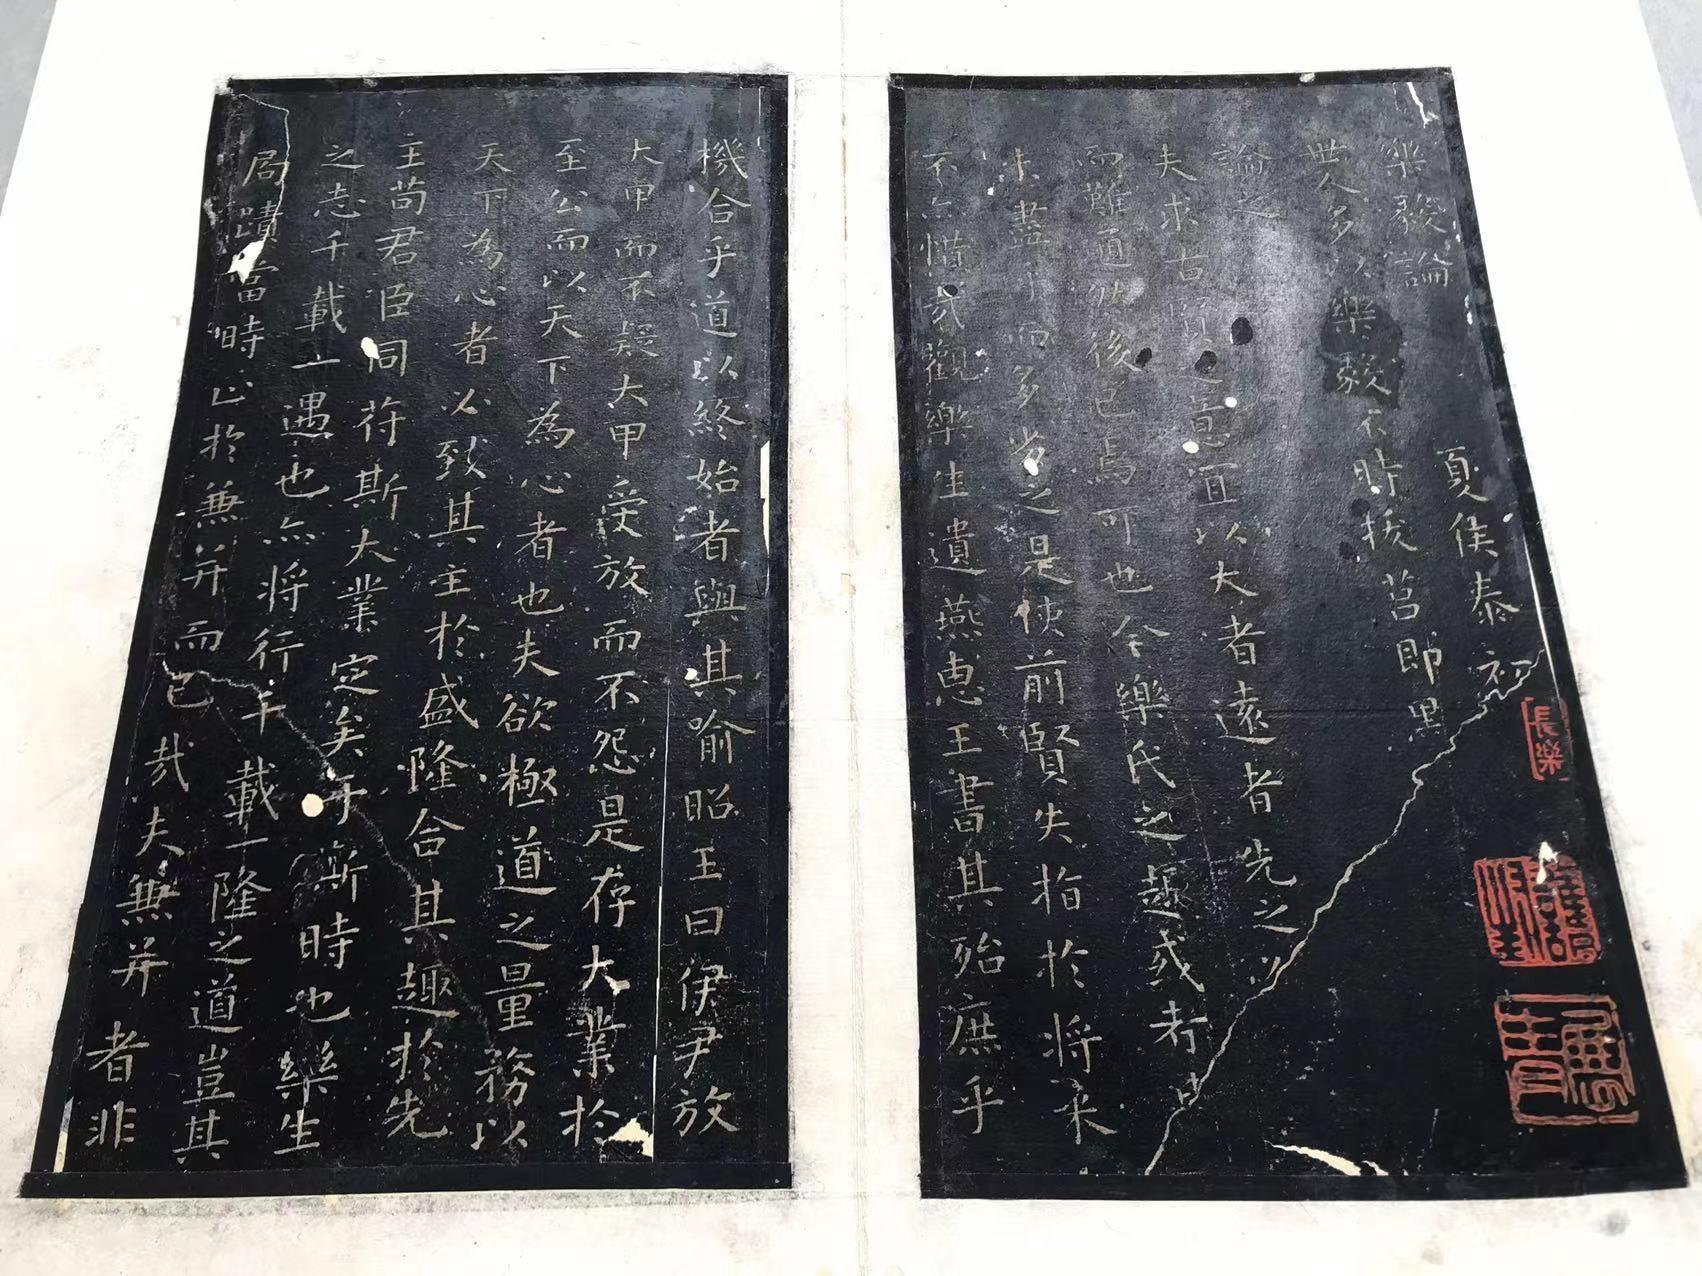 樂毅論
夏侯泰初
世人多以樂毅不時拔莒即墨
論之
夫求古賢之意宜以大者遠者先之必
而難通然後已焉可也今樂氏之趣或者
未盡乎而多劣之是使前賢失指於將来
不亦惜哉觀樂生遺燕惠王書其殆庶乎
機合乎道以終始者與其喻昭王曰伊尹放
大甲而不疑大甲受放而不怨是存大業於
至公而以天下為心者也夫欲極道之量務以
天下為心者必致其主於盛隆合其趣於先
王苟君臣同符斯大業定矣于斯時也樂生
之志千載一遇也亦將行千載一隆之道豈其
局蹟當時止於兼并而已哉夫兼并者非
長樂
無青